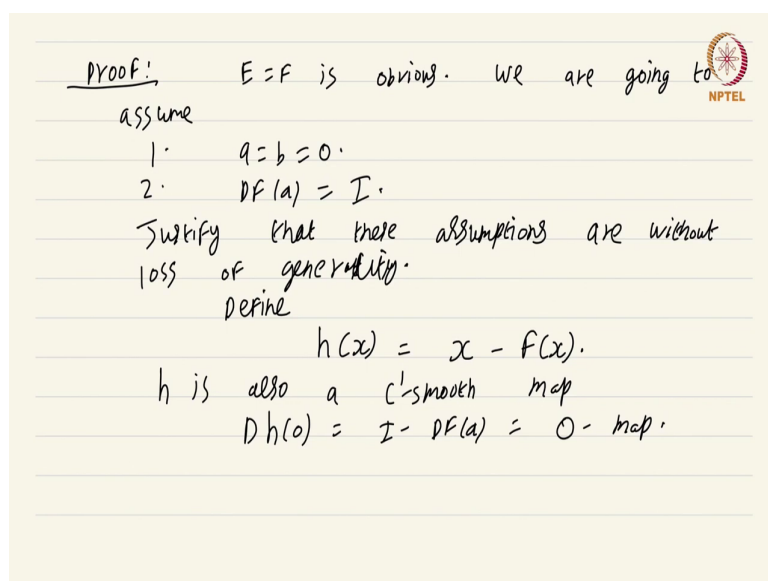 Proof: E = F is obvious. We are going to
NPTEL
assume
1. a = b = 0.
2. DF(a) = I.
Justify that these assumptions are without
loss of generality.
Define
h(x) = x - F(x).
h is also a C¹-smooth map
Dh(0) = I - DF(a) = 0-map.